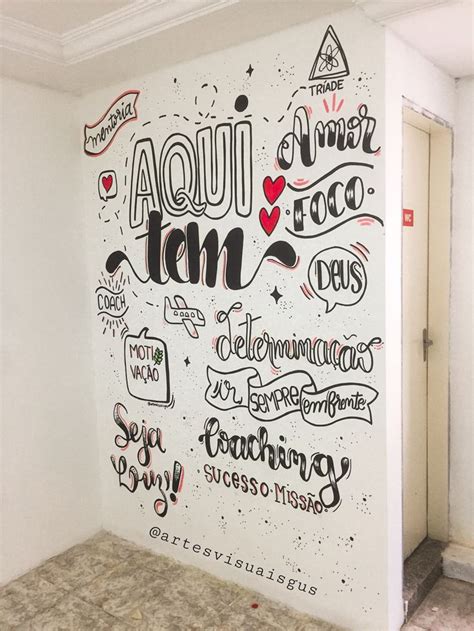 TRÍADE
mentoria
AQUI
tem
Amor
FOCO
DEUS
COACH
determinação
MOTI
VAÇÃO
ir SEMPRE em frente
Seja
Luz!
Coaching
SUCESSO • MISSÃO
@artesvisuaisgus
WC